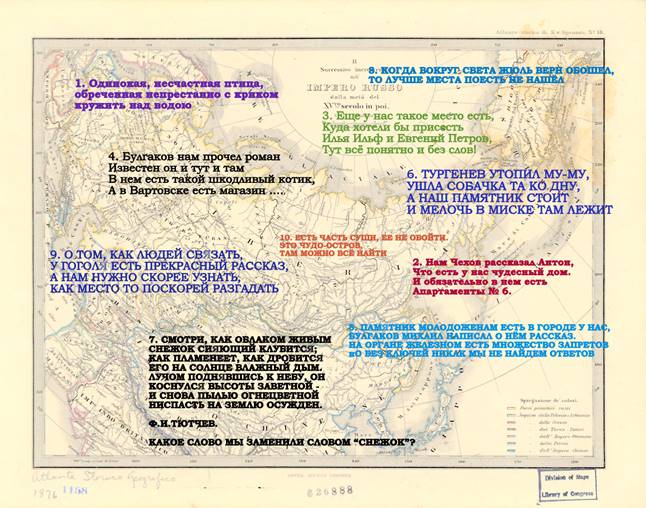 Atlante storico di E. v. Spruner. N° 18.
II
Successivo incre
dell'
IMPERO RUSSO
dalla metà del
XVmo secolo in poi.
1. Одинокая, несчастная птица,
обреченная непрестанно с криком
кружить над водою
8. КОГДА ВОКРУГ СВЕТА ЖЮЛЬ ВЕРН ОБОШЕЛ,
ТО ЛУЧШЕ МЕСТА ПОЕСТЬ НЕ НАШЕЛ
3. Еще у нас такое место есть,
Куда хотели бы присесть
Илья Ильф и Евгений Петров,
Тут всё понятно и без слов!
4. Булгаков нам прочел роман
Известен он и тут и там
В нем есть такой шкодливый котик,
А в Вартовске есть магазин ....
6. ТУРГЕНЕВ УТОПИЛ МУ-МУ,
УШЛА СОБАЧКА ТА КО ДНУ,
А НАШ ПАМЯТНИК СТОИТ
И МЕЛОЧЬ В МИСКЕ ТАМ ЛЕЖИТ
10. ЕСТЬ ЧАСТЬ СУШИ, ЕЕ НЕ ОБОЙТИ.
ЭТО ЧУДО-ОСТРОВ,
ТАМ МОЖНО ВСЁ НАЙТИ
9. О ТОМ, КАК ЛЮДЕЙ СВЯЗАТЬ,
У ГОГОЛЯ ЕСТЬ ПРЕКРАСНЫЙ РАССКАЗ,
А НАМ НУЖНО СКОРЕЕ УЗНАТЬ,
КАК МЕСТО ТО ПОСКОРЕЙ РАЗГАДАТЬ
2. Нам Чехов рассказал Антон,
Что есть у нас чудесный дом.
И обязательно в нем есть
Апартаменты № 6.
5. ПАМЯТНИК МОЛОДОЖЕНАМ ЕСТЬ В ГОРОДЕ У НАС,
БУЛГАКОВ МИХАИЛ НАПИСАЛ О НЁМ РАССКАЗ.
НА ОРГАНЕ ЖЕЛЕЗНОМ ЕСТЬ МНОЖЕСТВО ЗАПРЕТОВ
НО БЕЗ КЛЮЧЕЙ НИКАК МЫ НЕ НАЙДЕМ ОТВЕТОВ
7. СМОТРИ, КАК ОБЛАКОМ ЖИВЫМ
СНЕЖОК СИЯЮЩИЙ КЛУБИТСЯ;
КАК ПЛАМЕНЕЕТ, КАК ДРОБИТСЯ
ЕГО НА СОЛНЦЕ ВЛАЖНЫЙ ДЫМ.
ЛУЧОМ ПОДНЯВШИСЬ К НЕБУ, ОН
КОСНУЛСЯ ВЫСОТЫ ЗАВЕТНОЙ -
И СНОВА ПЫЛЬЮ ОГНЕЦВЕТНОЙ
НИСПАСТЬ НА ЗЕМЛЮ ОСУЖДЕН.
Ф.И.ТЮТЧЕВ.
КАКОЕ СЛОВО МЫ ЗАМЕНИЛИ СЛОВОМ "СНЕЖОК"?
Spiegazione de' colori.
Atlante Storico Geografico
1876 1168
626888
Division of Maps
Library of Congress